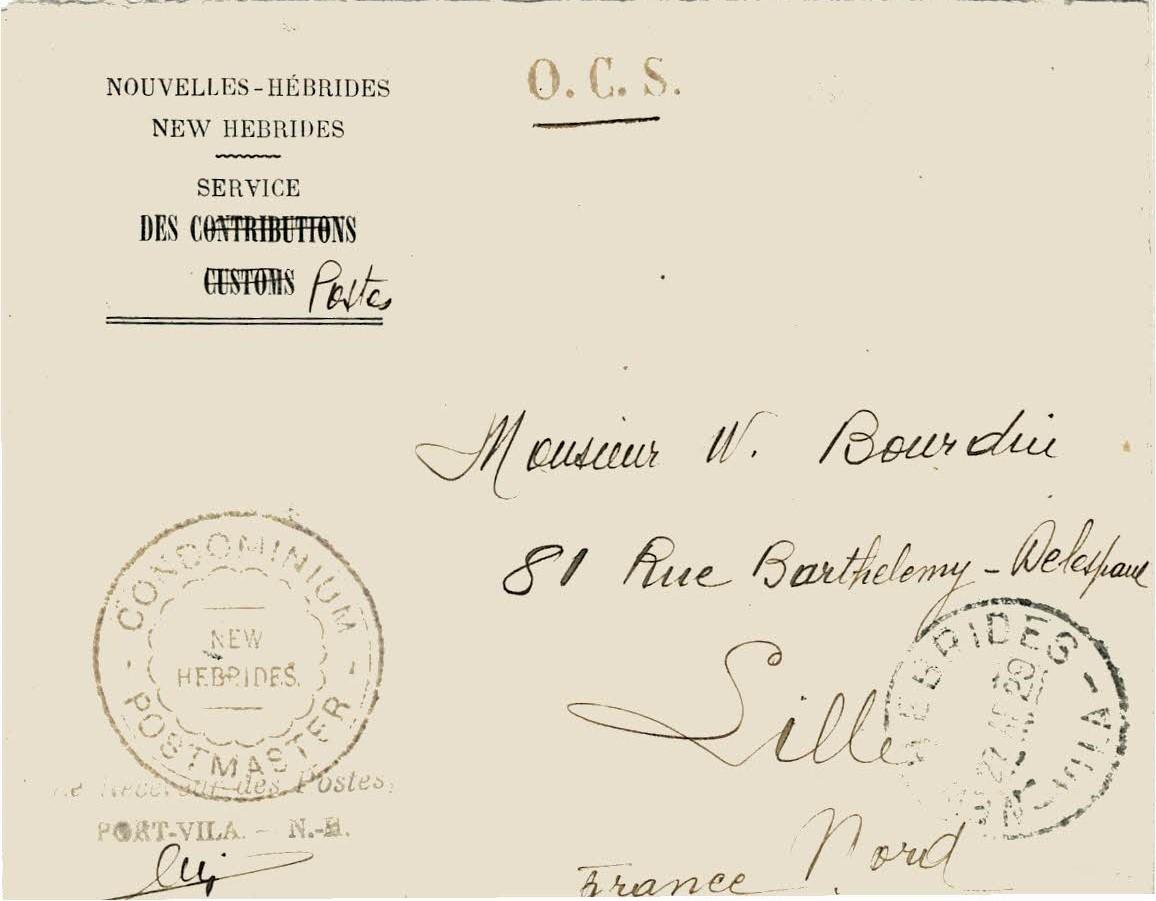 NOUVELLES-HÉBRIDES
NEW HEBRIDES
SERVICE
DES CONTRIBUTIONS
CUSTOMS Postes
O. C. S.
Monsieur W. Bourdin
81 Rue Barthelemy-Delespaul
Lille
Nord
France
CONDOMINIUM
NEW
HEBRIDES.
POSTMASTER
Le Receveur des Postes,
PORT-VILA. - N.-H.
HEBRIDES - VILA